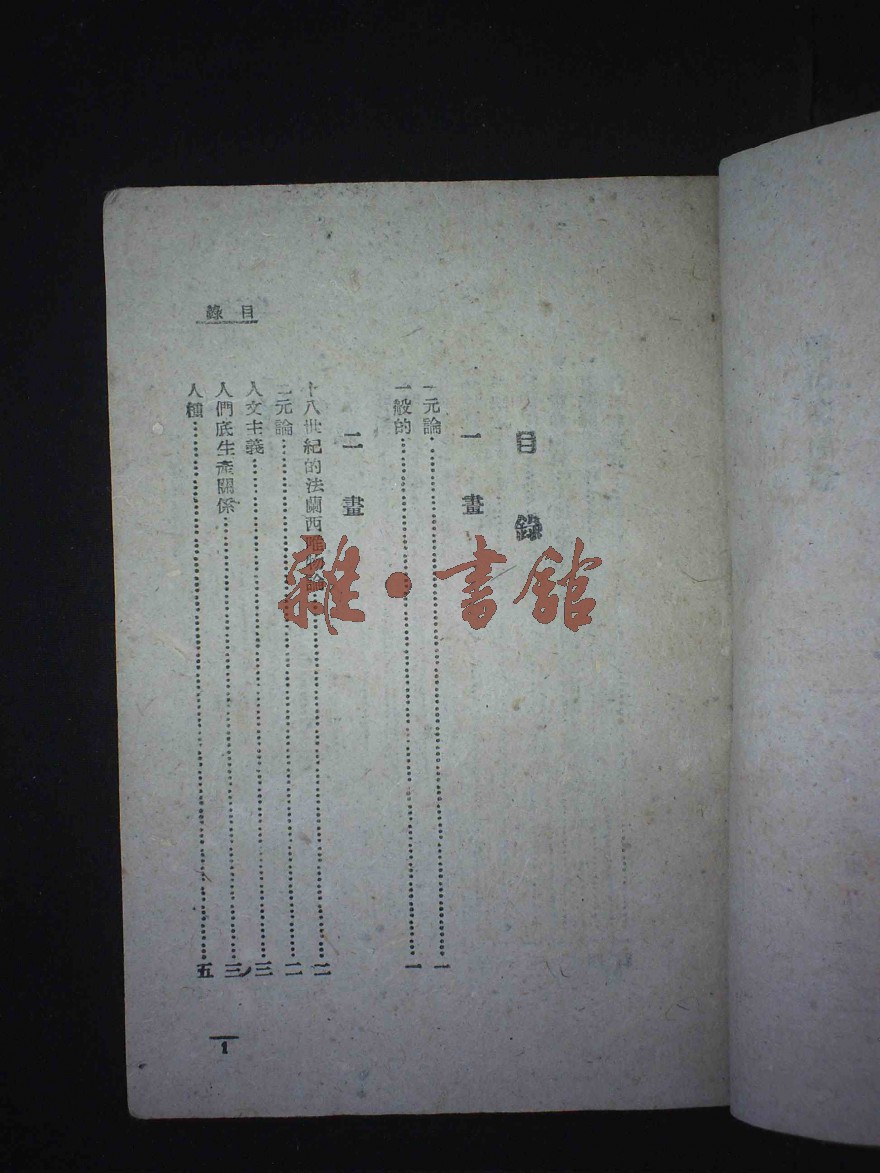 目錄
目錄
一畫
一元論…………一
一般的…………一
二畫
十八世紀的法蘭西唯物論…………二
二元論…………二
人文主義…………三
人們底生產關係…………三
人種…………五
1
雜·書館